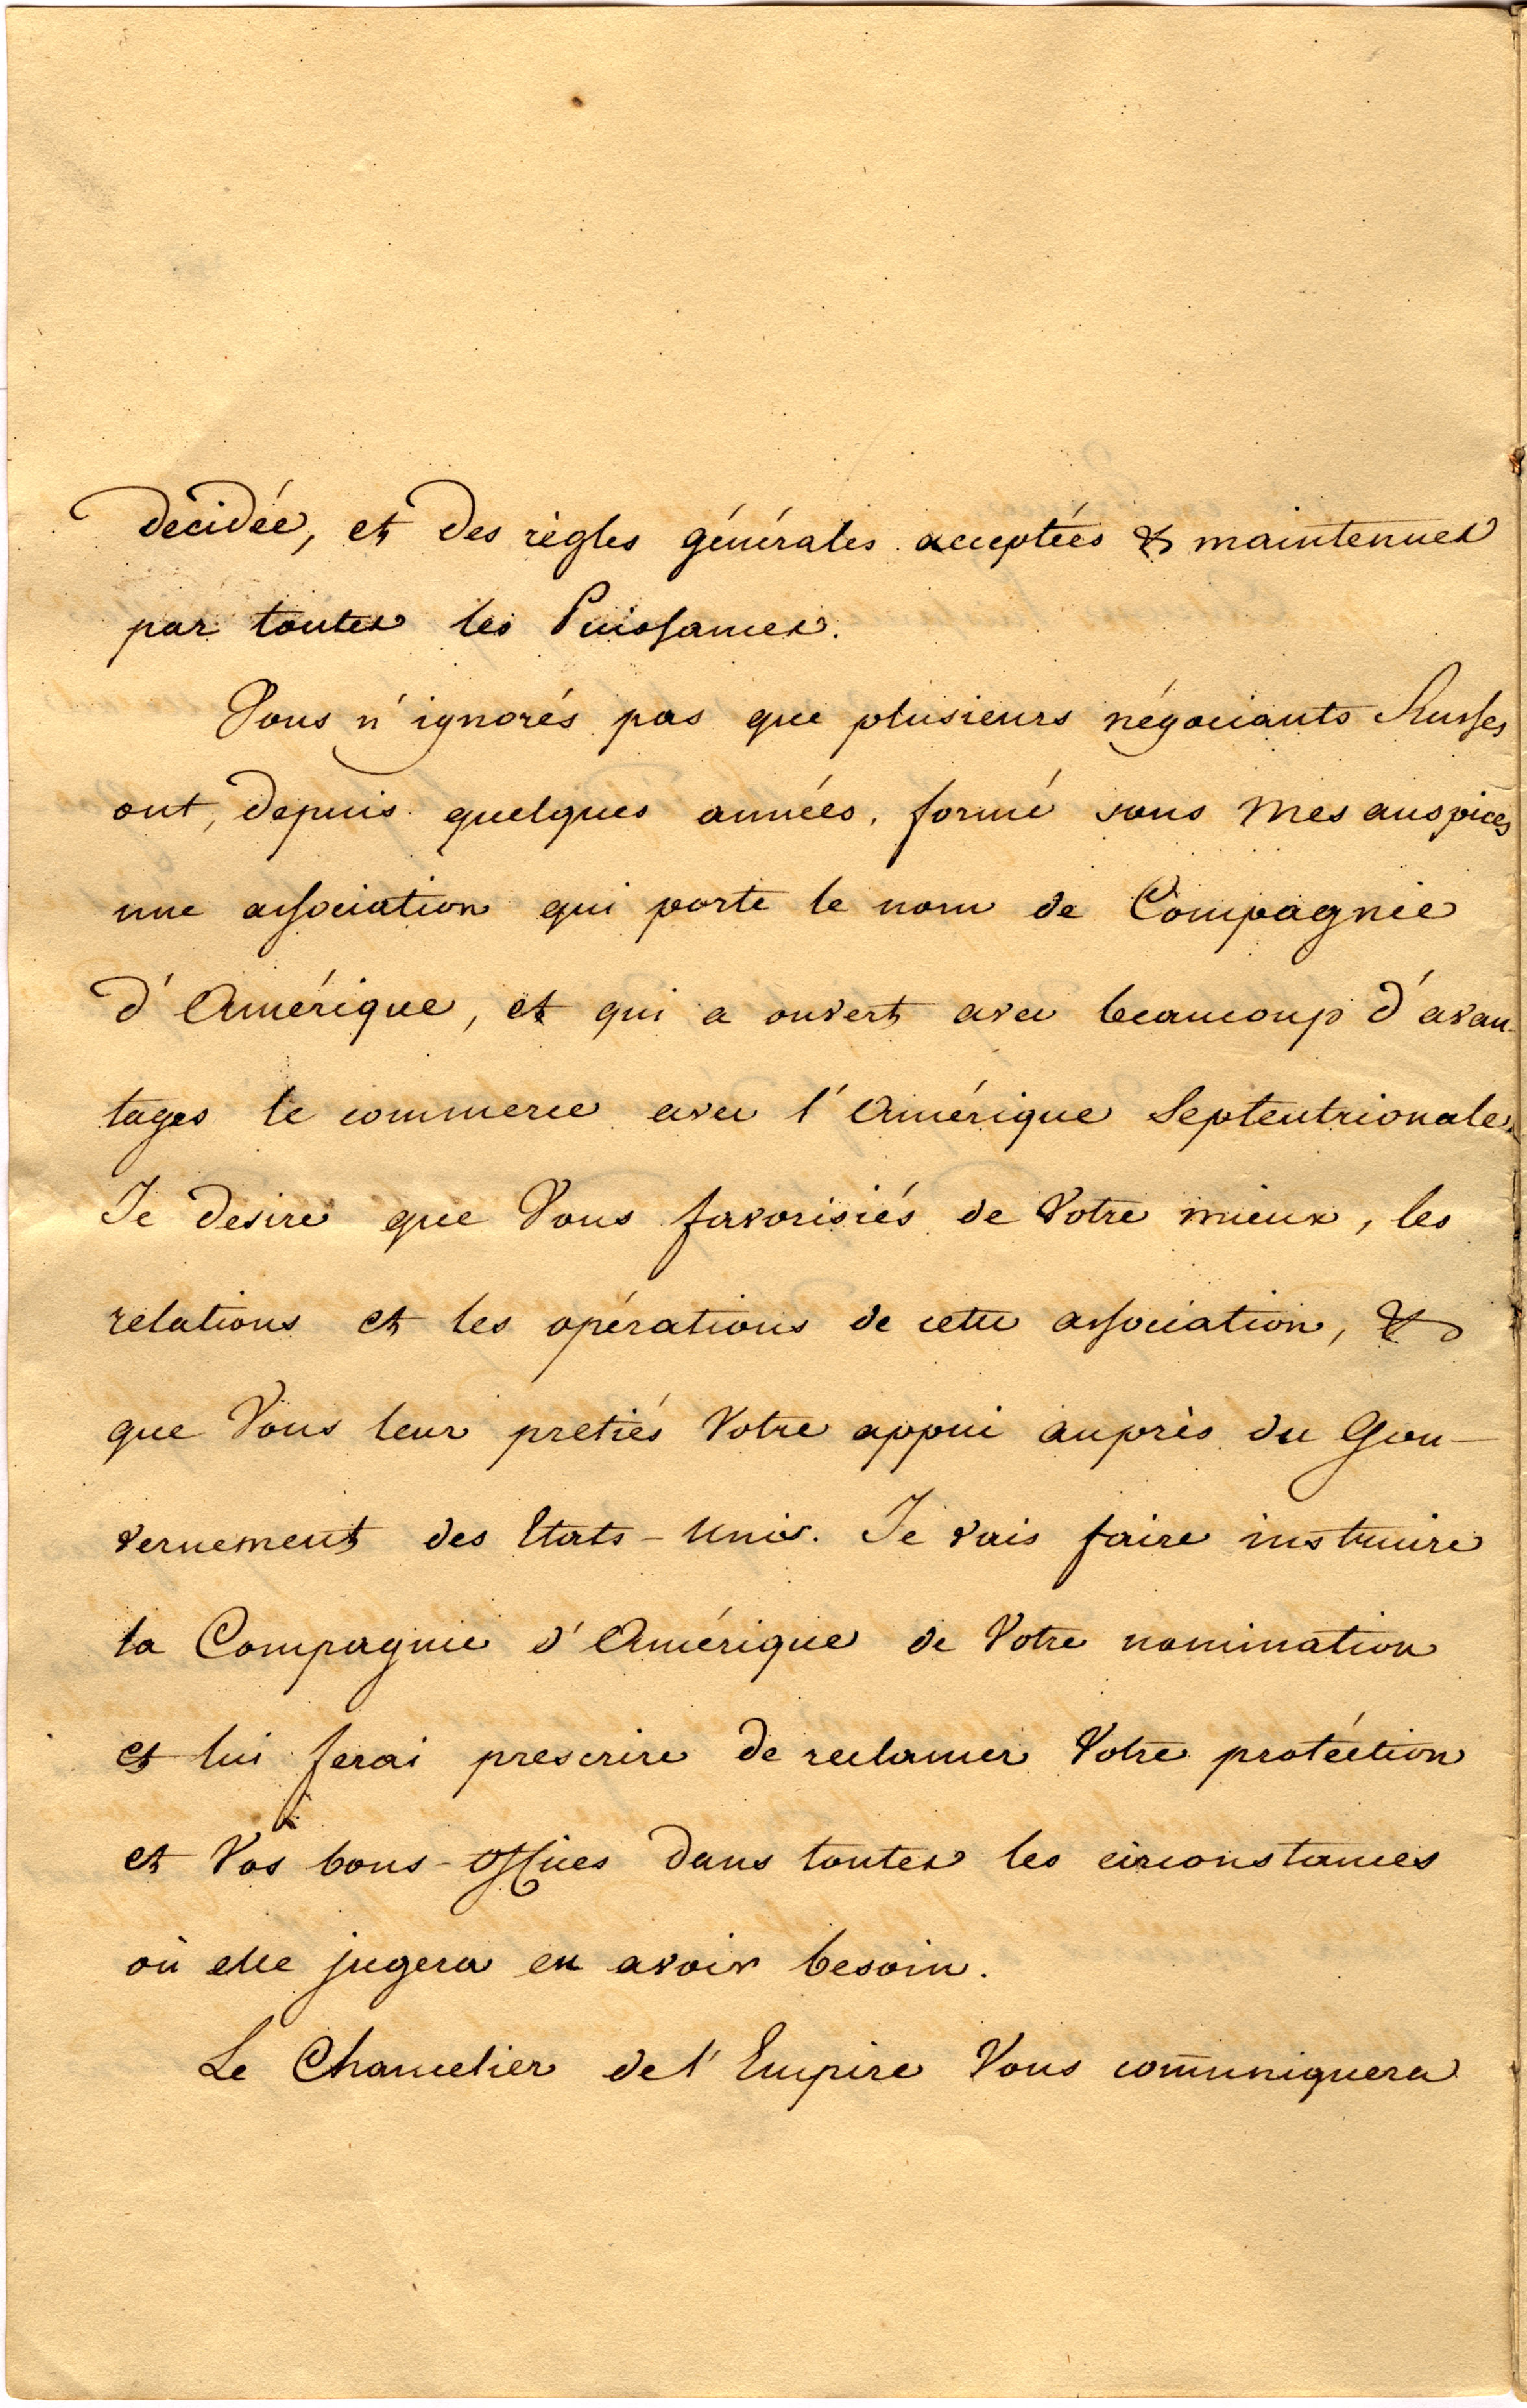 decidée, et des règles générales acceptées & maintenues
par toutes les Puissances.
Vous n'ignorés pas que plusieurs négociants Russes
ont, depuis quelques années, formé sous Mes auspices
une association qui porte le nom de Compagnie
d'Amérique, et qui a ouvert avec beaucoup d'avan-
tages le commerce avec l'Amérique Septentrionale.
Je desire que Vous favorisiés de Votre mieux, les
relations et les opérations de cette association, &
que Vous leur pretiés Votre appui auprès du Gou-
vernement des Etats-Unis. Je vais faire instruire
la Compagnie d'Amérique de Votre nomination
et lui ferai prescrire de reclamer Votre protéction
et Vos bons-offices dans toutes les circonstances
où elle jugera en avoir besoin.
Le Chancelier de l'Empire Vous com̄uniquera